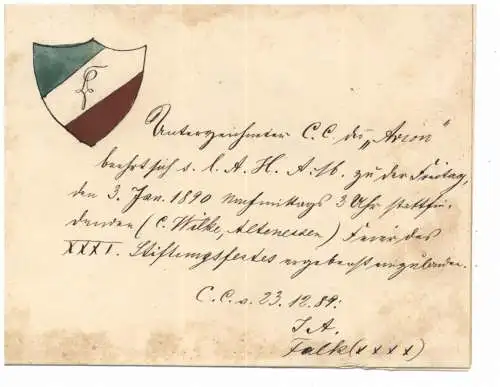 Unterzeichneter C.C. der „Arion"
beehrt sich s. l. A. H. A. M. zu der Freitag,
den 3. Jan. 1890 Nachmittags 3 Uhr stattfin-
denden (C. Wilke, Altenessen) Feier des
XXXI. Stiftungsfestes ergebenst einzuladen.
C.C. v. 23.12.89:
I.A.
Falk (xxxx)